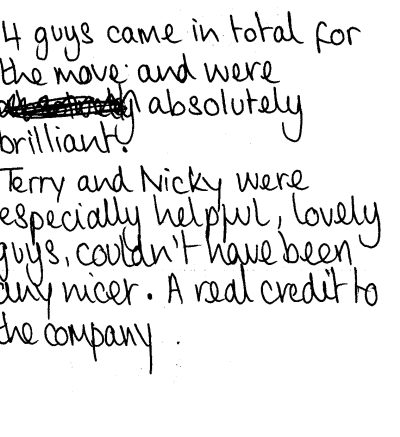 4 guys came in total for
the move and were
absolutely
brilliant!
Terry and Nicky were
especially helpful, lovely
guys, couldn't have been
any nicer. A real credit to
the company.